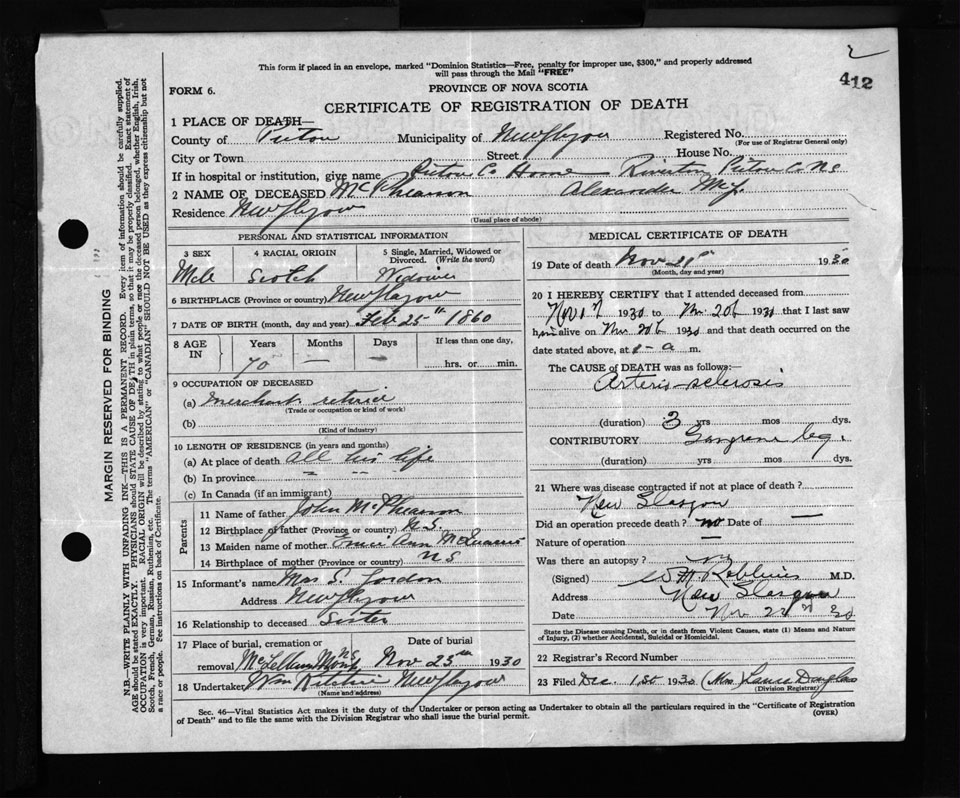 2
412
This form if placed in an envelope, marked "Dominion Statistics—Free, penalty for improper use, $300," and properly addressed
will pass through the Mail "FREE"
FORM 6.
PROVINCE OF NOVA SCOTIA
CERTIFICATE OF REGISTRATION OF DEATH
1 PLACE OF DEATH—
County of Pictou Municipality of New Glasgow Registered No.
(For use of Registrar General only)
City or Town Street House No.
If in hospital or institution, give name Pictou Co Home Riverton Pictou Co N.S
2 NAME OF DECEASED McPhearson Alexander
Residence New Glasgow
(Usual place of abode)
PERSONAL AND STATISTICAL INFORMATION
3 SEX 4 RACIAL ORIGIN 5 Single, Married, Widowed or
Divorced. (Write the word)
Male Scotch Widower
6 BIRTHPLACE (Province or country) New Glasgow
7 DATE OF BIRTH (month, day and year) Feb 25th 1860
8 AGE IN Years Months Days If less than one day,
70 — — hrs. or min.
9 OCCUPATION OF DECEASED
(a) Merchant retired
(Trade or occupation or kind of work)
(b)
(Kind of industry)
10 LENGTH OF RESIDENCE (in years and months)
(a) At place of death all his life
(b) In province
(c) In Canada (if an immigrant)
Parents
11 Name of father John McPhearson
12 Birthplace of father (Province or country) N.S.
13 Maiden name of mother Ann
14 Birthplace of mother (Province or country) N S
15 Informant's name Mrs S. Gordon
Address New Glasgow
16 Relationship to deceased Sister
17 Place of burial, cremation or Date of burial
removal McLellans Mount NS Nov 23rd 1930
18 Undertaker Wm Ritchie New Glasgow
(Name and address)
MEDICAL CERTIFICATE OF DEATH
19 Date of death Nov 21st 1930
(Month, day and year)
20 I HEREBY CERTIFY that I attended deceased from
Nov 1930 to Nov. 20th 1930 that I last saw
him alive on Nov 20th 1930 and that death occurred on the
date stated above, at a m.
The CAUSE of DEATH was as follows:—
Arterio-sclerosis
(duration) 3 yrs mos dys.
CONTRIBUTORY Gangrene leg.
(duration) yrs mos dys.
21 Where was disease contracted if not at place of death?
New Glasgow
Did an operation precede death? no Date of —
Nature of operation —
Was there an autopsy? no
(Signed) M.D.
Address New Glasgow
Date Nov 22nd 30
State the Disease causing Death, or in death from Violent Causes, state (1) Means and Nature
of Injury, (2) whether Accidental, Suicidal or Homicidal.
22 Registrar's Record Number
23 Filed Dec. 1st 1930 (Mrs) Douglas
(Division Registrar)
Sec. 46—Vital Statistics Act makes it the duty of the Undertaker or person acting as Undertaker to obtain all the particulars required in the "Certificate of Registration
of Death" and to file the same with the Division Registrar who shall issue the burial permit.
(OVER)
MARGIN RESERVED FOR BINDING
N.B.—WRITE PLAINLY WITH UNFADING INK—THIS IS A PERMANENT RECORD. Every item of information should be carefully supplied.
AGE should be stated EXACTLY. PHYSICIANS should STATE CAUSE OF DEATH in plain terms, so that it may be properly classified. Exact statement of
OCCUPATION is very important. RACIAL ORIGIN will be described by stating to what people or race the deceased person belonged, whether English, Irish,
Scotch, French, German, Russian, Ruthenian, etc. The terms "AMERICAN" or "CANADIAN" SHOULD NOT BE USED as they express citizenship but not
a race or people. See instructions on back of Certificate.